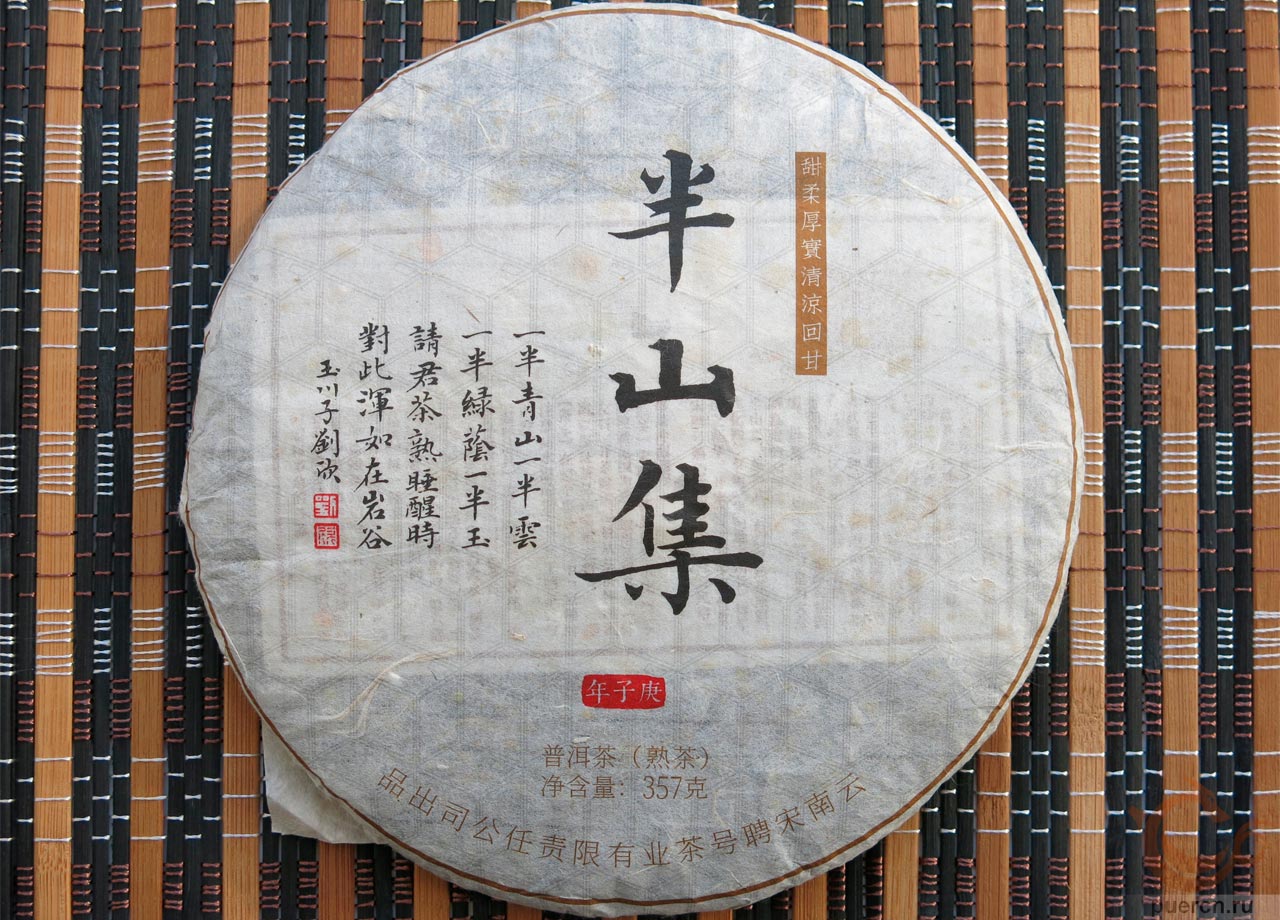 甜柔厚實清涼回甘
半山集
一半青山一半雲
一半緑蔭一半玉
請君茶熟睡醒時
對此渾如在岩谷
玉川子劉欣
年子庚
普洱茶（熟茶）
净含量：357克
品出司公任责限有业茶号聘宋南云
puercn.ru